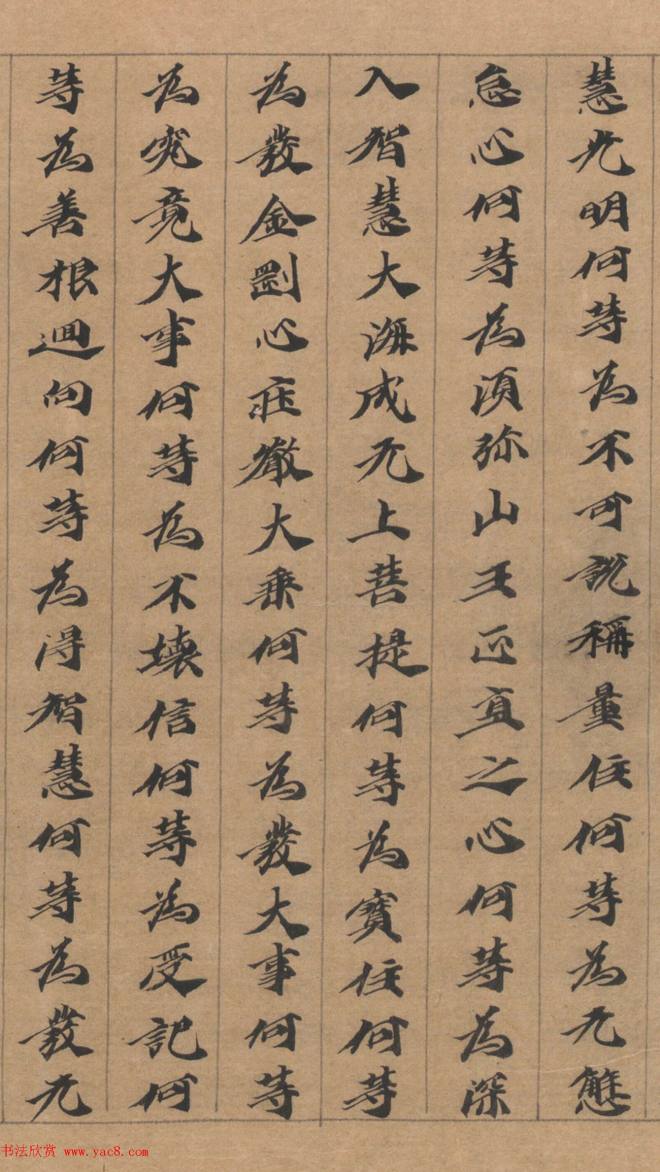 慧光明何等為不可說稱量住何等為无懈
怠心何等為須弥山王正直之心何等為深
入智慧大海成无上菩提何等為寶住何等
為發金剛心莊嚴大乘何等為發大事何等
為究竟大事何等為不壞信何等為受記何
等為善根迴向何等為得智慧何等為發无
书法欣赏 www.yac8.com